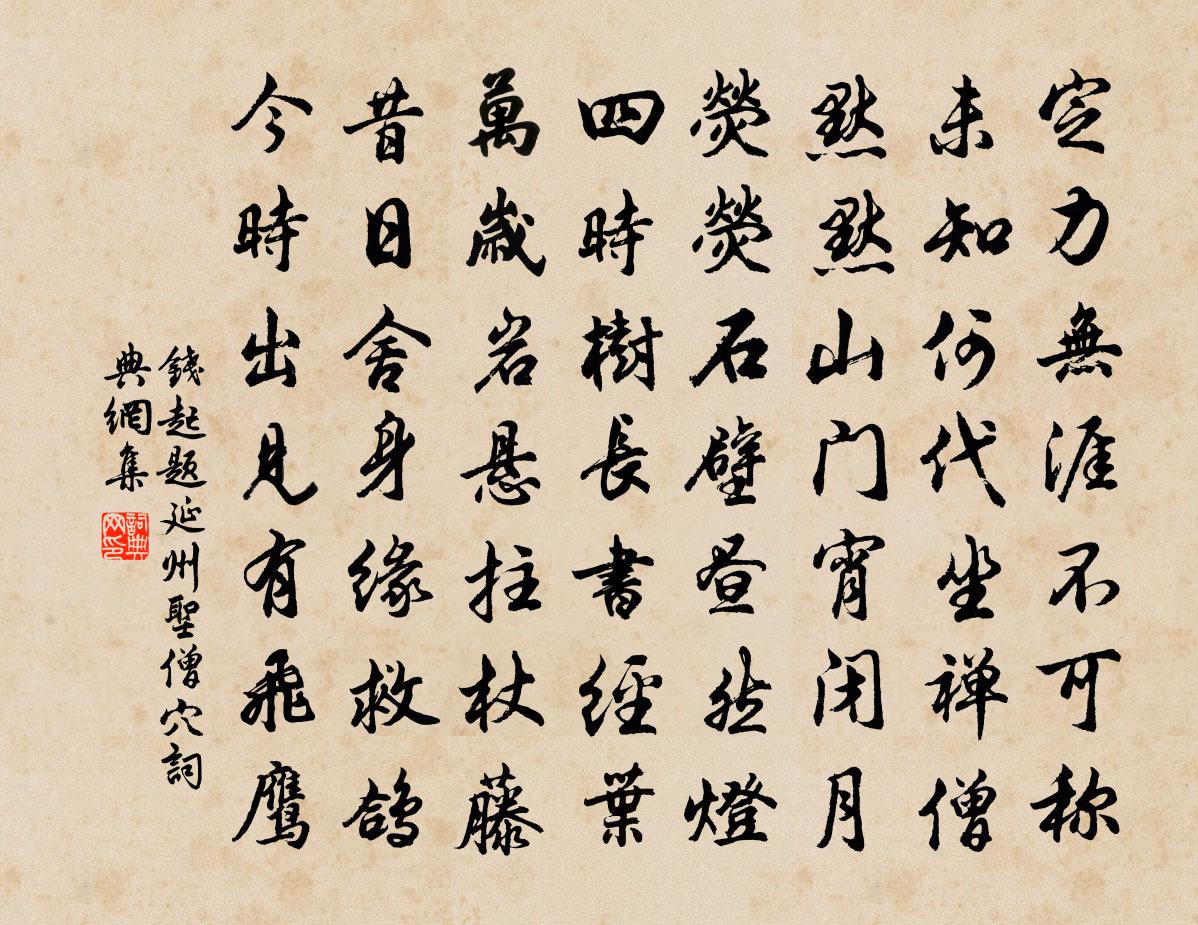 定力無涯不可称
未知何代坐禅僧
黙黙山门宵闭月
熒熒石壁昼然燈
四時樹長書經葉
萬歲岩悬拄杖藤
昔日舍身缘救鴿
今時出見有飛鷹
錢起题延州聖僧穴詞
典網集
詞典网印